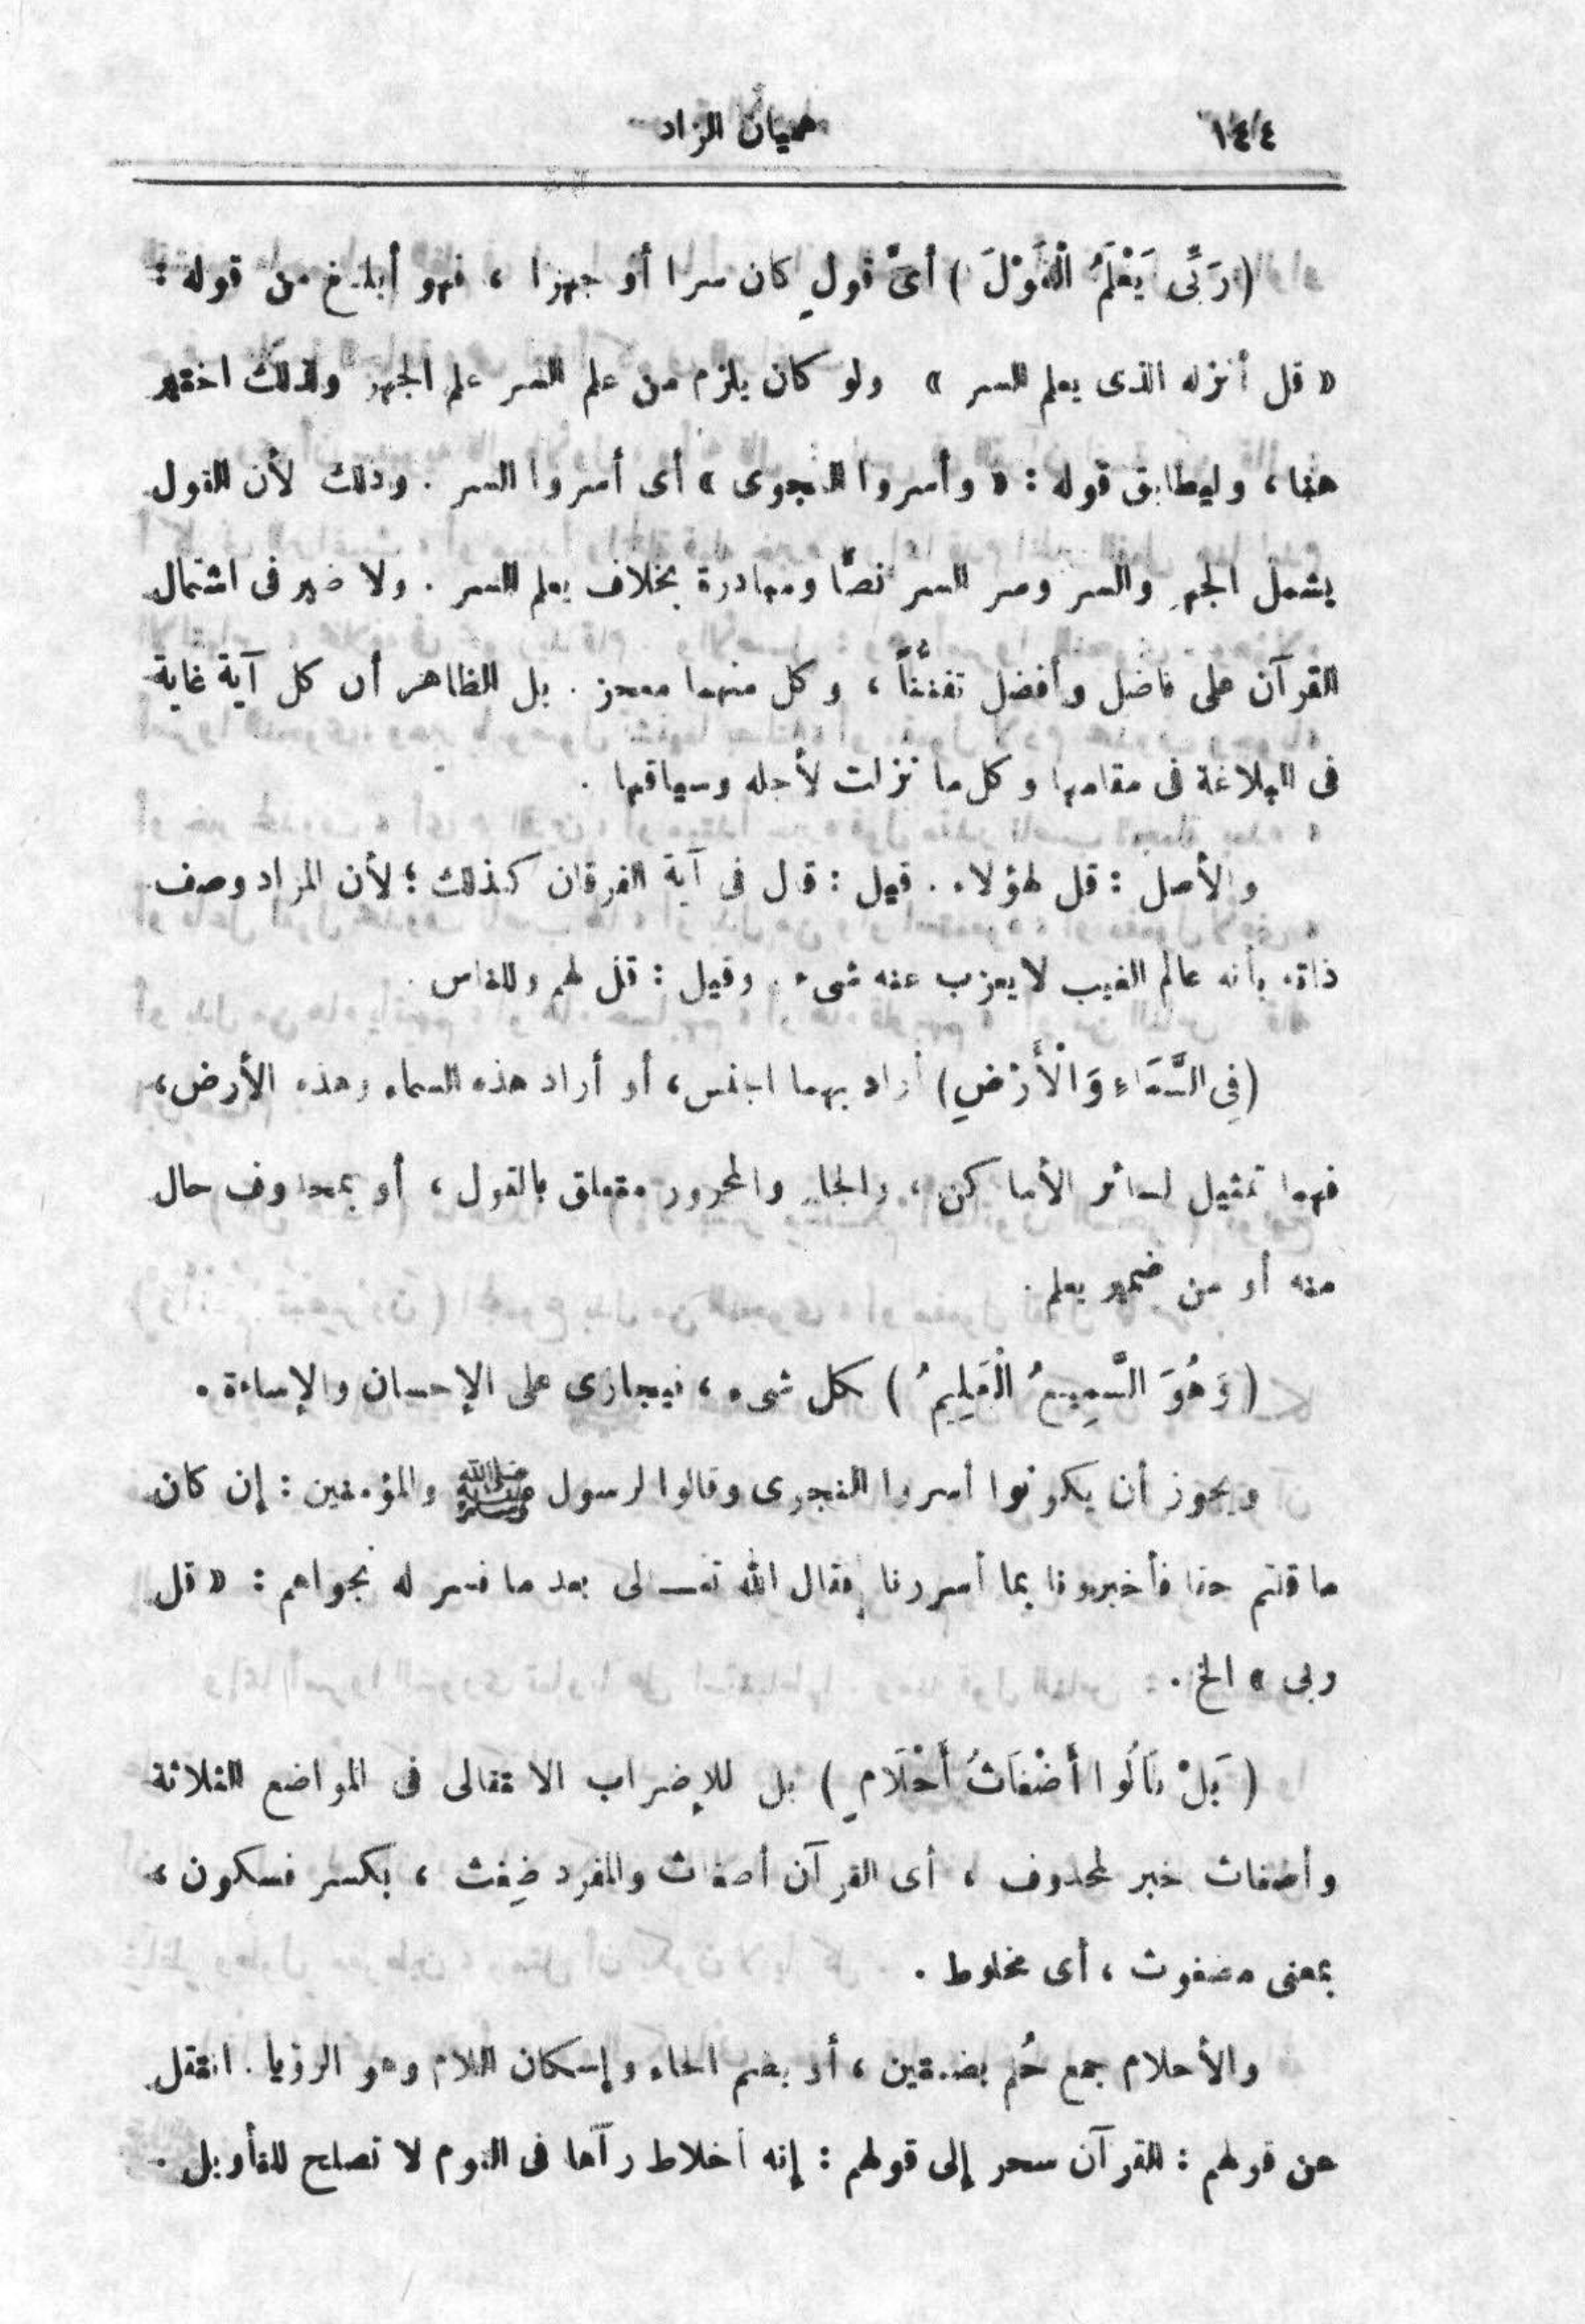 ١٤٤
هميان الزاد
(رَبِّى يَعْلَمُ الْقَوْلَ) أىَّ قولٍ كان سرا أو جهرا ، فهو أبلغ من قوله :
« قل أنزله الذى يعلم السر » ولو كان يلزم من علم السر علم الجهر ولذلك اختير
هنا ، وليطابق قوله : « وأسروا النجوى » أى أسروا السر . وذلك لأن القول
يشمل الجهر والسر وسر السر نصًّا ومبادرة بخلاف يعلم السر . ولا ضير فى اشتمال
القرآن على فاضل وأفضل تفنُّناً ، وكل منهما معجز . بل الظاهر أن كل آية غاية
فى البلاغة فى مقامها وكل ما نزلت لأجله وسياقها .
والأصل : قل لهؤلاء . قيل : قال فى آية الفرقان كذلك ؛ لأن المراد وصف
ذاته بأنه عالم الغيب لا يعزب عنه شىء . وقيل : قل لهم وللناس .
(فِى السَّمَاءِ وَالْأَرْضِ) أراد بهما الجنس ، أو أراد هذه السماء وهذه الأرض ،
فهما تمثيل لسائر الأماكن ، والجار والمجرور متعلق بالقول ، أو بمحذوف حال
منه أو من ضمير يعلم .
(وَهُوَ السَّمِيعُ الْعَلِيمُ) بكل شىء ، فيجازى على الإحسان والإساءة .
ويجوز أن يكونوا أسروا النجوى وقالوا لرسول ﷺ والمؤمنين : إن كان
ما قلتم حقا فأخبرونا بما أسررنا فقال الله تعــالى بعد ما فسر له نجواهم : « قل
ربى » الخ .
(بَلْ قَالُوا أَضْغَاثُ أَحْلَامٍ) بل للإضراب الانتقالى فى المواضع الثلاثة
وأضغاث خبر لمحذوف ، أى القرآن أضغاث والمفرد ضِغث ، بكسر فسكون ،
بمعنى مضغوث ، أى مخلوط .
والأحلام جمع حُلُم بضمتين ، أو بضم الحاء وإسكان اللام وهو الرؤيا . انتقل
عن قولهم : القرآن سحر إلى قولهم : إنه أخلاط رآها فى النوم لا تصلح للتأويل .